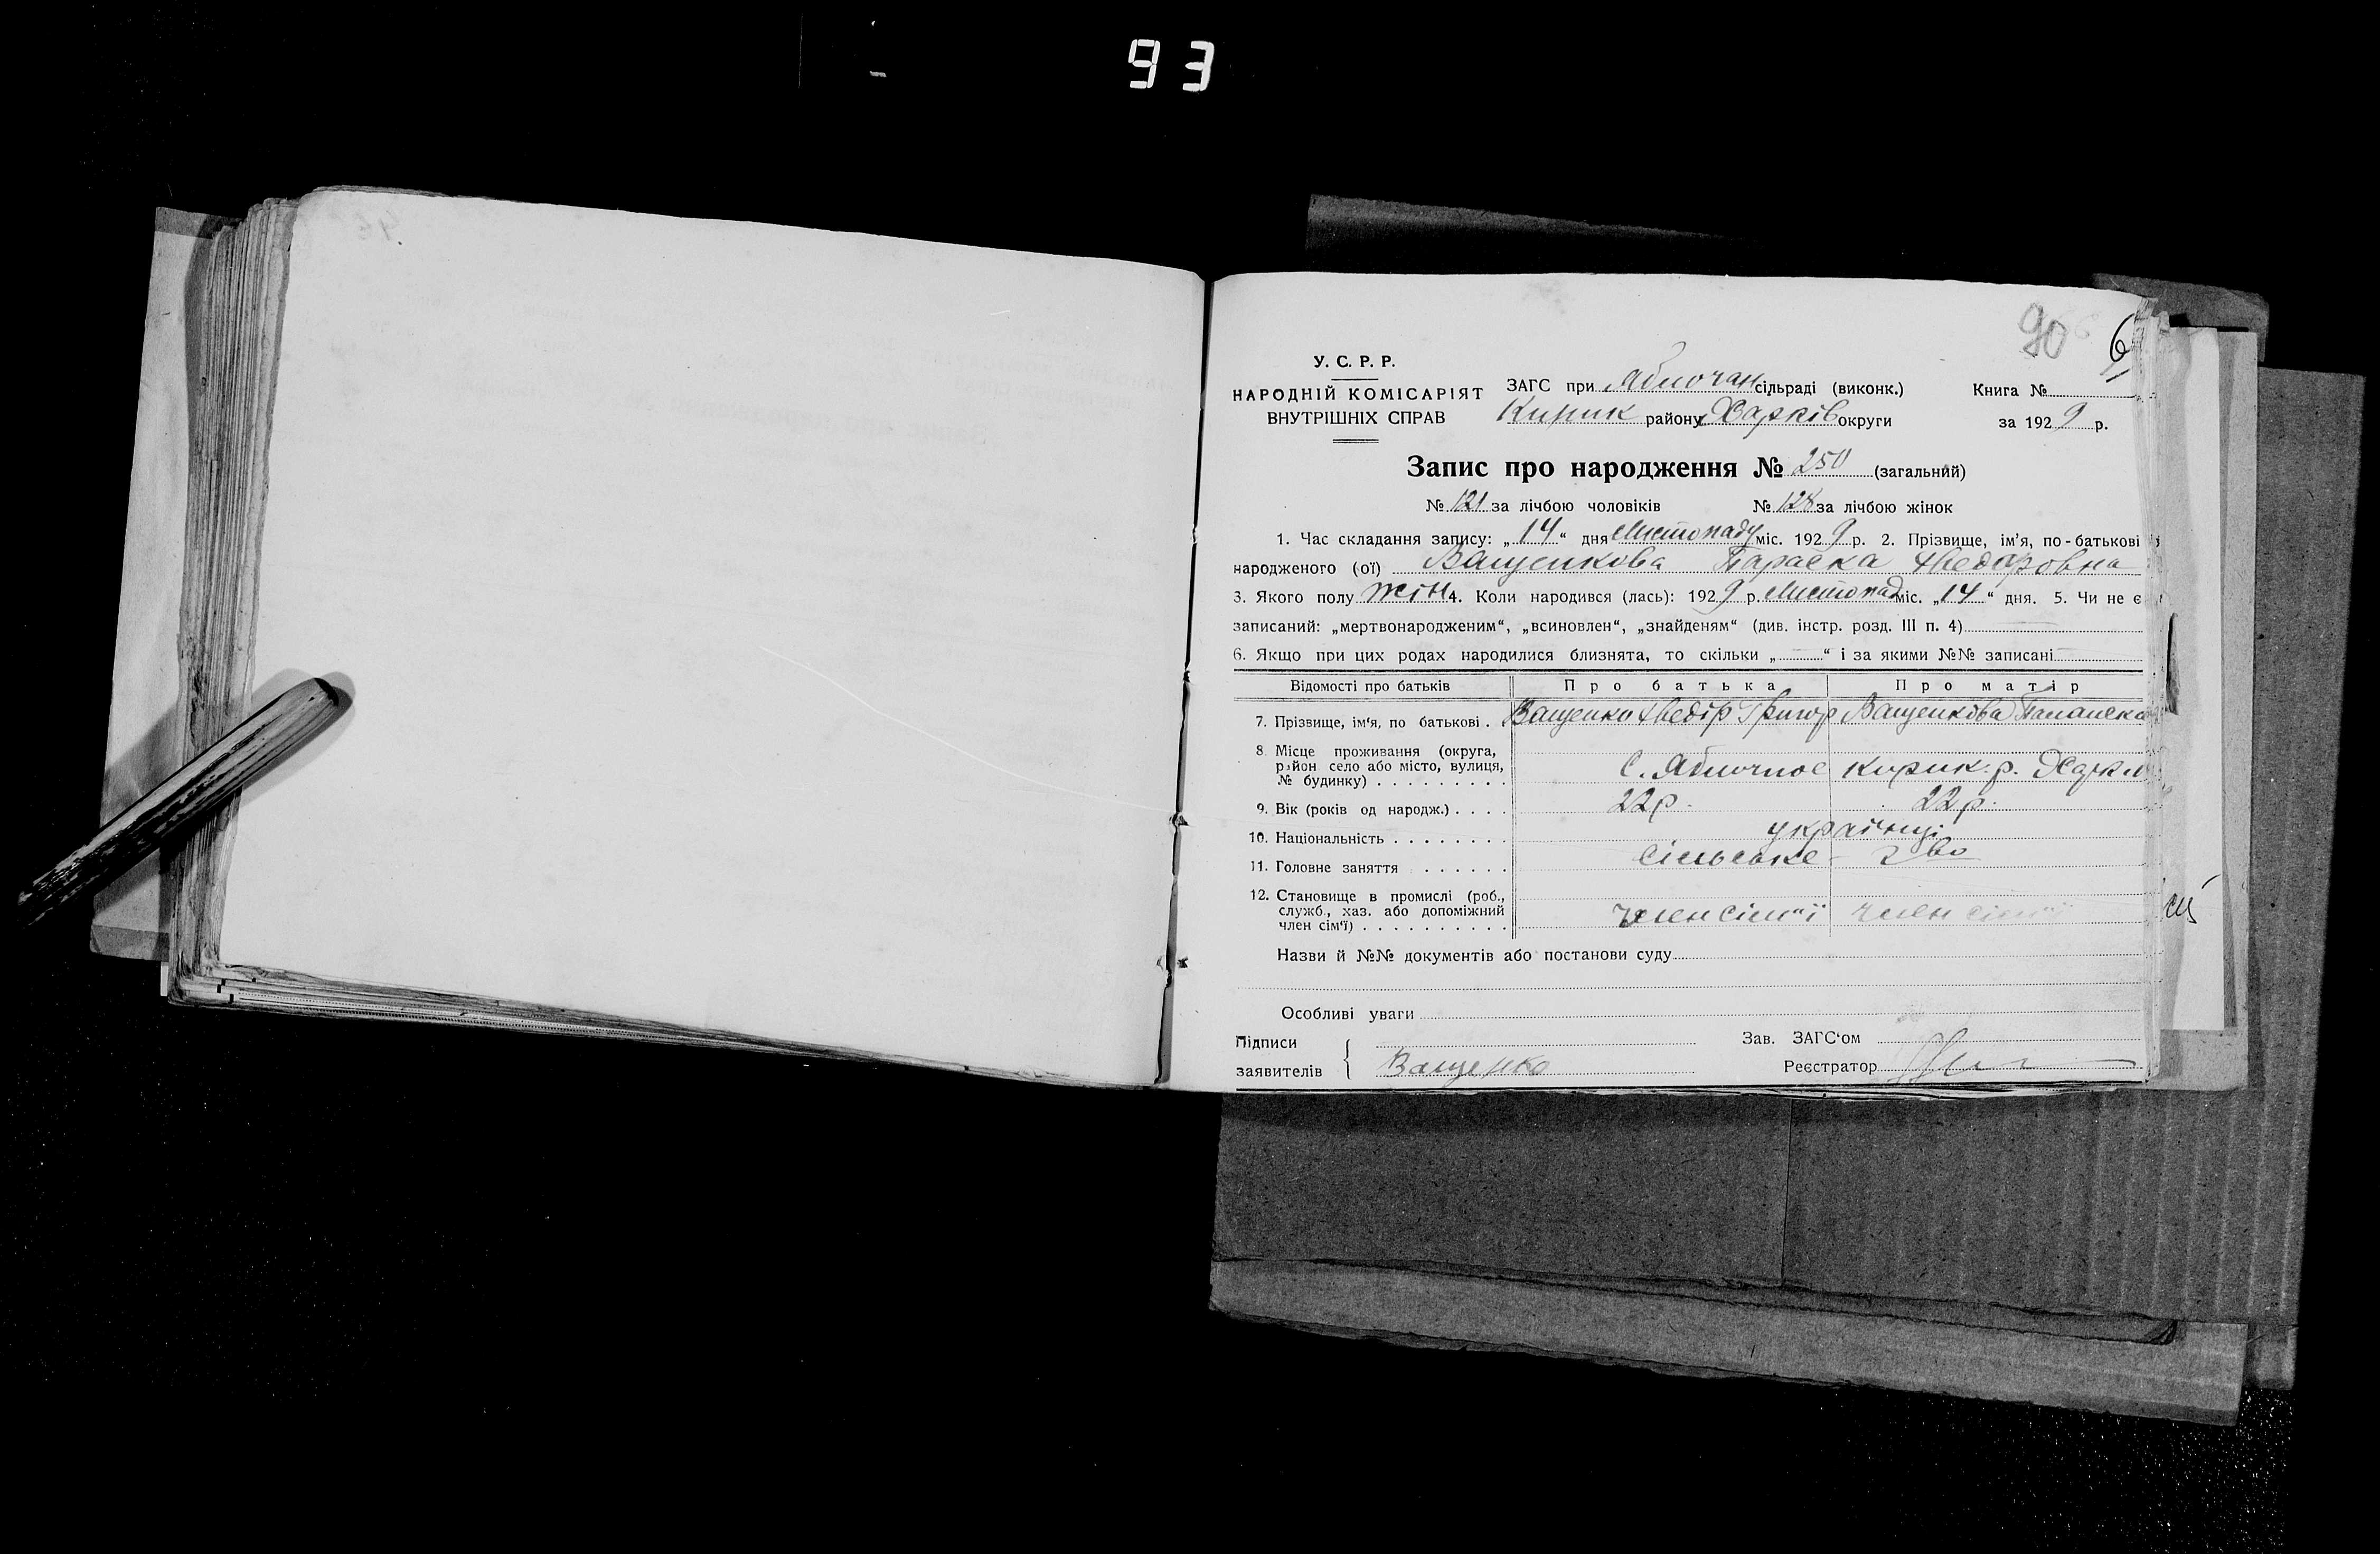 93
90
У. С. Р. Р.
НАРОДНІЙ КОМІСАРІЯТ
ВНУТРІШНІХ СПРАВ
ЗАГС при Яблочан сільраді (виконк.)
Кирик району Харків округи
Книга №
за 1929 р.
Запис про народження № 250 (загальний)
№ 121 за лічбою чоловіків № 128 за лічбою жінок
1. Час складання запису: „14“ дня Листопаду міс. 1929 р. 2. Прізвище, ім'я, по-батькові
народженого (ої) Ващенкова Параска Хведоровна
3. Якого полу жін 4. Коли народився (лась): 1929 р. Листопад міс. „14“ дня. 5. Чи не є
записаний: „мертвонародженим“, „всиновлен“, „знайденям“ (див. інстр. розд. III п. 4)
6. Якщо при цих родах народилися близнята, то скільки „ “ і за якими №№ записані
Відомості про батьків Про батька Про матір
7. Прізвище, ім'я, по батькові . Ващенко Хведір Григор Ващенкова
8. Місце проживання (округа,
район село або місто, вулиця,
№ будинку) . . . . . . . . . с. Яблочное Кирик. р. Харк
9. Вік (років од народж.) . . . . 22 р. 22 р.
10. Національність . . . . . . . . українці
11. Головне заняття . . . . . . сільське г-во
12. Становище в промислі (роб.,
служб., хаз. або допоміжний
член сім'ї) . . . . . . . . . . член сім'ї член сім'ї
Назви й №№ документів або постанови суду
Особливі уваги
Підписи
заявителів
Ващенко
Зав. ЗАГС'ом
Реєстратор